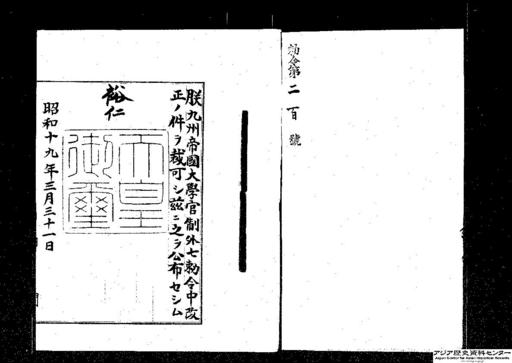 勅令第二百號
朕九州帝國大學官制外七勅令中改
正ノ件ヲ裁可シ茲ニ之ヲ公布セシム
裕仁
天皇
御璽
昭和十九年三月三十一日
アジア歴史資料センター
Japan Center for Asian Historical Records